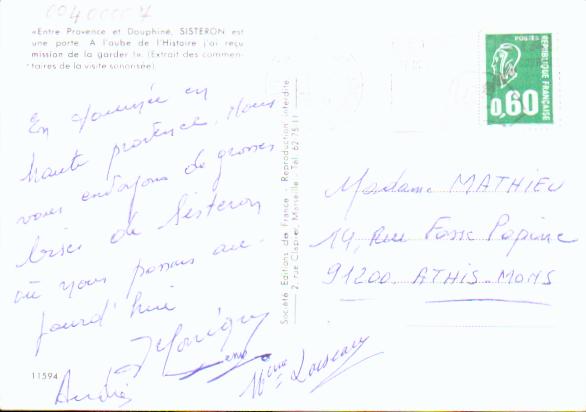 0040000 7
«Entre Provence et Dauphiné, SISTERON est
une porte. A l'aube de l'Histoire j'ai reçu
mission de la garder !» (Extrait des commen-
taires de la visite sonorisée).
En journée en
haute provence. Nous
vous envoyons de grosses
bises de Sisteron
où nous passons au-
jourd'hui
André
Mme
11594
Société Editions de France - Reproduction interdite
2, rue Clapier, Marseille - Tél. 62-75-11
POSTES
RÉPUBLIQUE FRANÇAISE
0,60
Madame MATHIEU
14, Rue Fosse Popine
91200 ATHIS-MONS